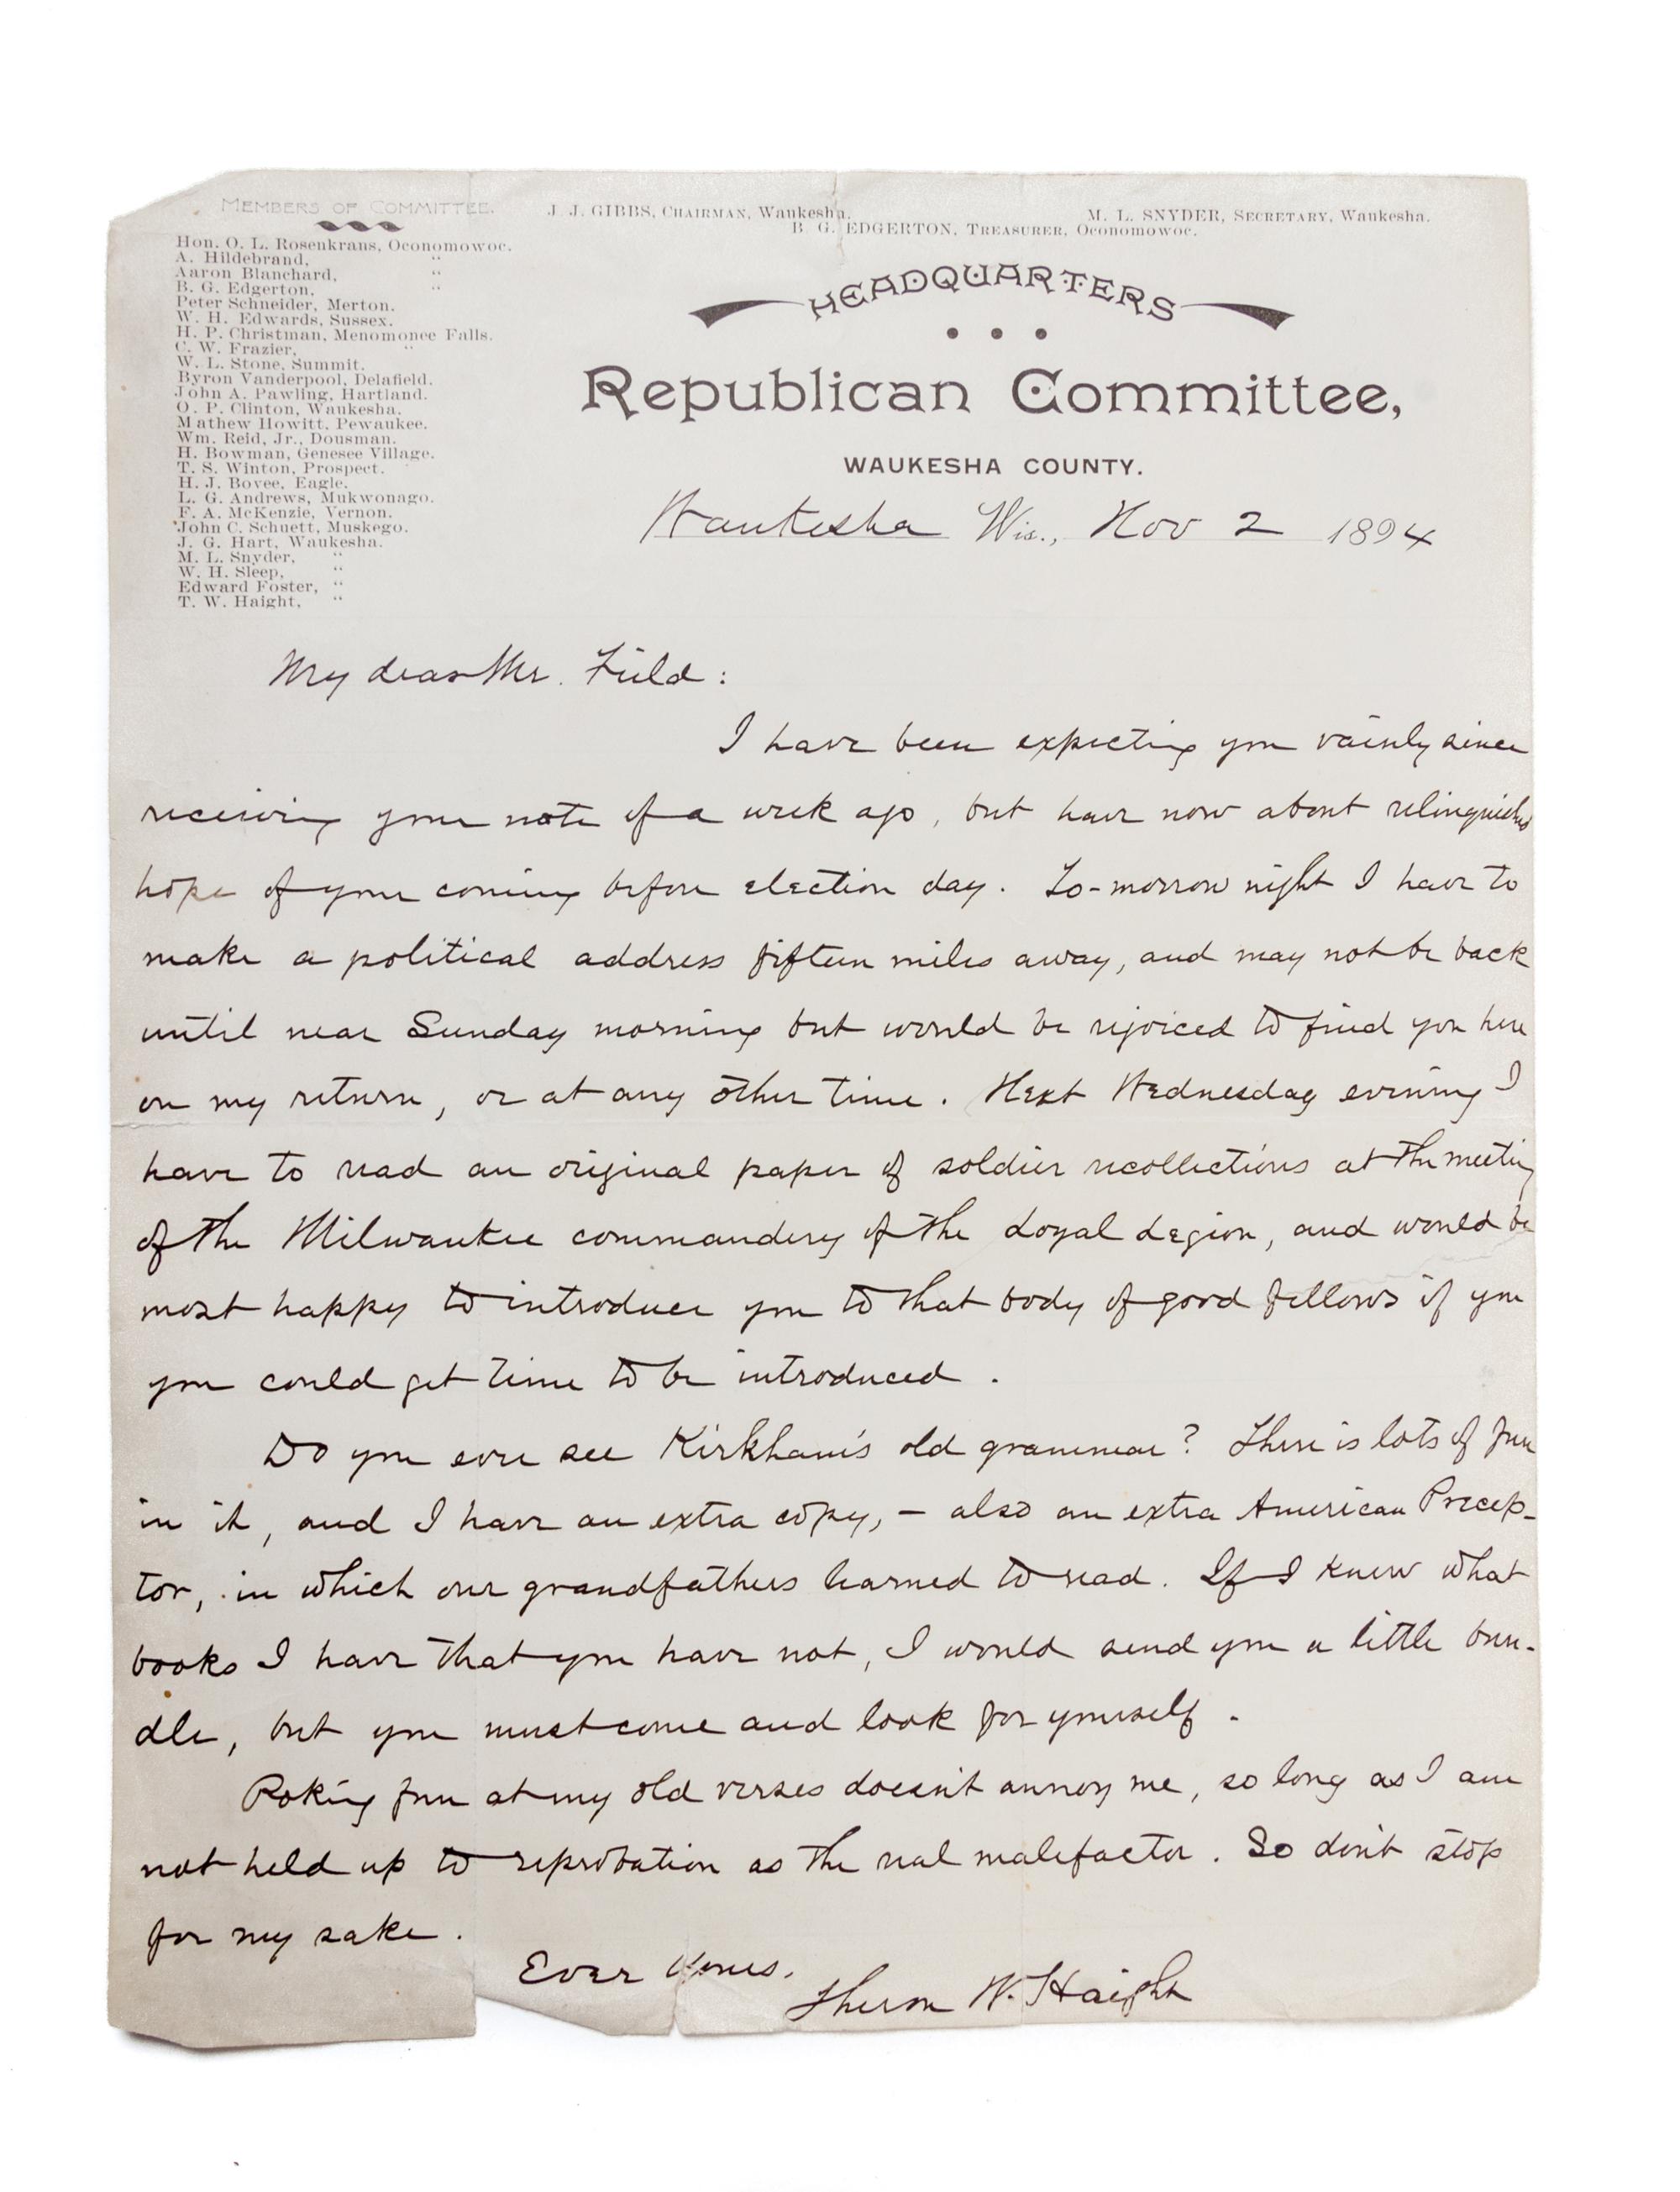 MEMBERS OF COMMITTEE.
Hon. O. L. Rosenkrans, Oconomowoc.
A. Hildebrand, "
Aaron Blanchard, "
B. G. Edgerton, "
Peter Schneider, Merton.
W. H. Edwards, Sussex.
H. P. Christman, Menomonee Falls.
C. W. Frazier, "
W. L. Stone, Summit.
Byron Vanderpool, Delafield.
John A. Pawling, Hartland.
O. P. Clinton, Waukesha.
Mathew Howitt, Pewaukee.
Wm. Reid, Jr., Dousman.
H. Bowman, Genesee Village.
T. S. Winton, Prospect.
H. J. Bovee, Eagle.
L. G. Andrews, Mukwonago.
F. A. McKenzie, Vernon.
John C. Schuett, Muskego.
J. G. Hart, Waukesha.
M. L. Snyder, "
W. H. Sleep, "
Edward Foster, "
T. W. Haight, "
J. J. GIBBS, CHAIRMAN, Waukesha.
M. L. SNYDER, SECRETARY, Waukesha.
B. G. EDGERTON, TREASURER, Oconomowoc.
HEADQUARTERS
Republican Committee,
WAUKESHA COUNTY.
Waukesha Wis., Nov 2 1894
My dear Mr. Field:
I have been expecting you vainly since
receiving your note of a week ago, but have now about relinquished
hope of your coming before election day. To-morrow night I have to
make a political address fifteen miles away, and may not be back
until near Sunday morning but would be rejoiced to find you here
on my return, or at any other time. Next Wednesday evening I
have to read an original paper of soldier recollections at the meeting
of the Milwaukee commandery of the Loyal Legion, and would be
most happy to introduce you to that body of good fellows if you
you could get time to be introduced.
Do you ever see Kirkham's old grammar? There is lots of fun
in it, and I have an extra copy, – also an extra American Precep-
tor, in which our grandfathers learned to read. If I knew what
books I have that you have not, I would send you a little bun-
dle, but you must come and look for yourself.
Poking fun at my old verses doesn't annoy me, so long as I am
not held up to reprobation as the real malefactor. So don't stop
for my sake.
Ever yours,
Theron W. Haight